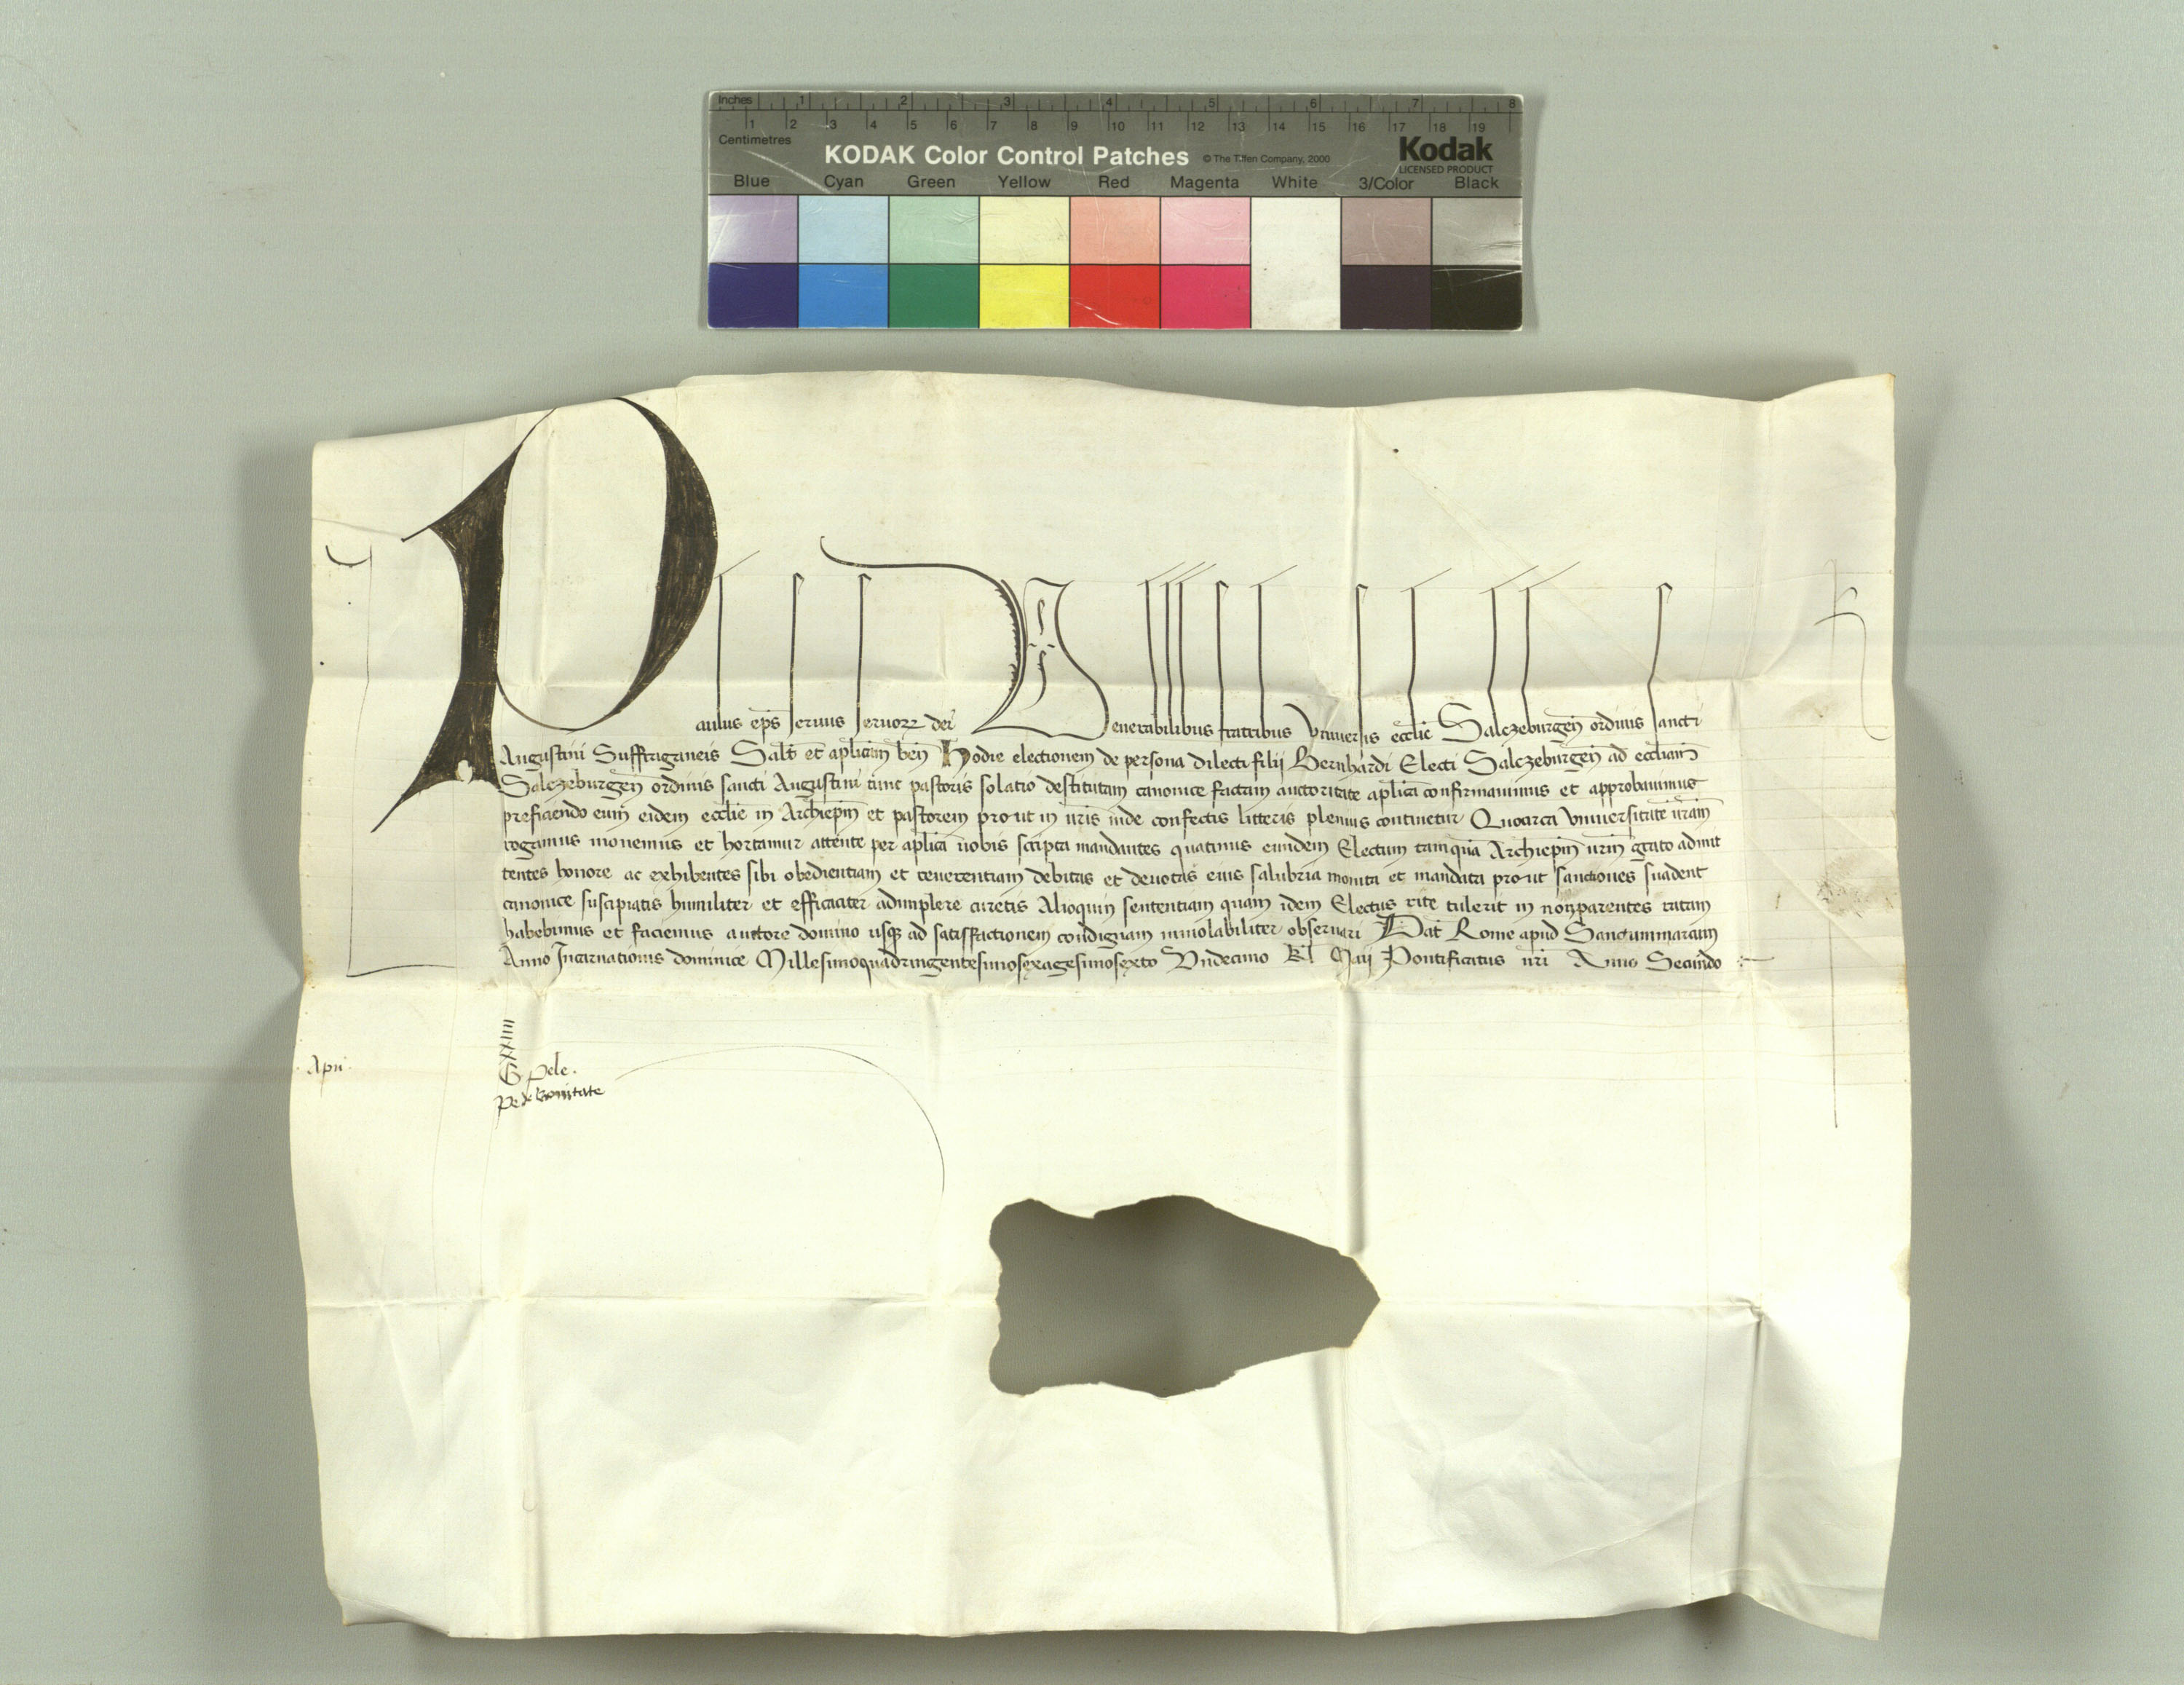 Inches 1 2 3 4 5 6 7 8
1 2 3 4 5 6 7 8 9 10 11 12 13 14 15 16 17 18 19
Centimetres
KODAK Color Control Patches © The Tiffen Company, 2000 Kodak
LICENSED PRODUCT
Blue Cyan Green Yellow Red Magenta White 3/Color Black
Paulus ep̄s seruus seruoꝝ dei Venerabilibus fratribus Vniuersis eccl̄ie Salczeburgen̄ ordinis sancti
Augustini Suffraganeis Sal̄t et ap̄licam ben̄ Hodie electionem de persona dilecti filii Bernhardi Electi Salczeburgen̄ ad eccl̄iam
Salczeburgen̄ ordinis sancti Augustini tunc pastoris solatio destitutam canonice factam auctoritate ap̄lica confirmauimus et approbauimus
preficiendo eum eidem eccl̄ie in Archiep̄m et pastorem prout in nr̄is inde confectis litteris plenius continetur Quocirca vniuersitatē vr̄am
rogamus monemus et hortamur attente per ap̄lica uobis scripta mandantes quatinus eundem Electum tamquā Archiep̄m ur̄m grato admit
tentes honore ac exhibentes sibi obedientiam et reuerentiam debitas et deuotas eius salubria monita et mandata prout sanctiones suadent
canonice suscipiatis humiliter et efficaciter adimplere curetis Alioquin sententiam quam idem Electus rite tulerit in non parentes ratam
habebimus et faciemus auctore domino usqꝫ ad satisfactionem condignam inuiolabiliter obseruari Dat̄ Rome apud Sanctummarcum
Anno Incarnationis dominice Millesimoquadringentesimosexagesimosexto Vndecimo Kl̄ Maii Pontificatus nr̄i Anno Secundo
xxiiii
Apri
G. pele.
Pe de bonitate